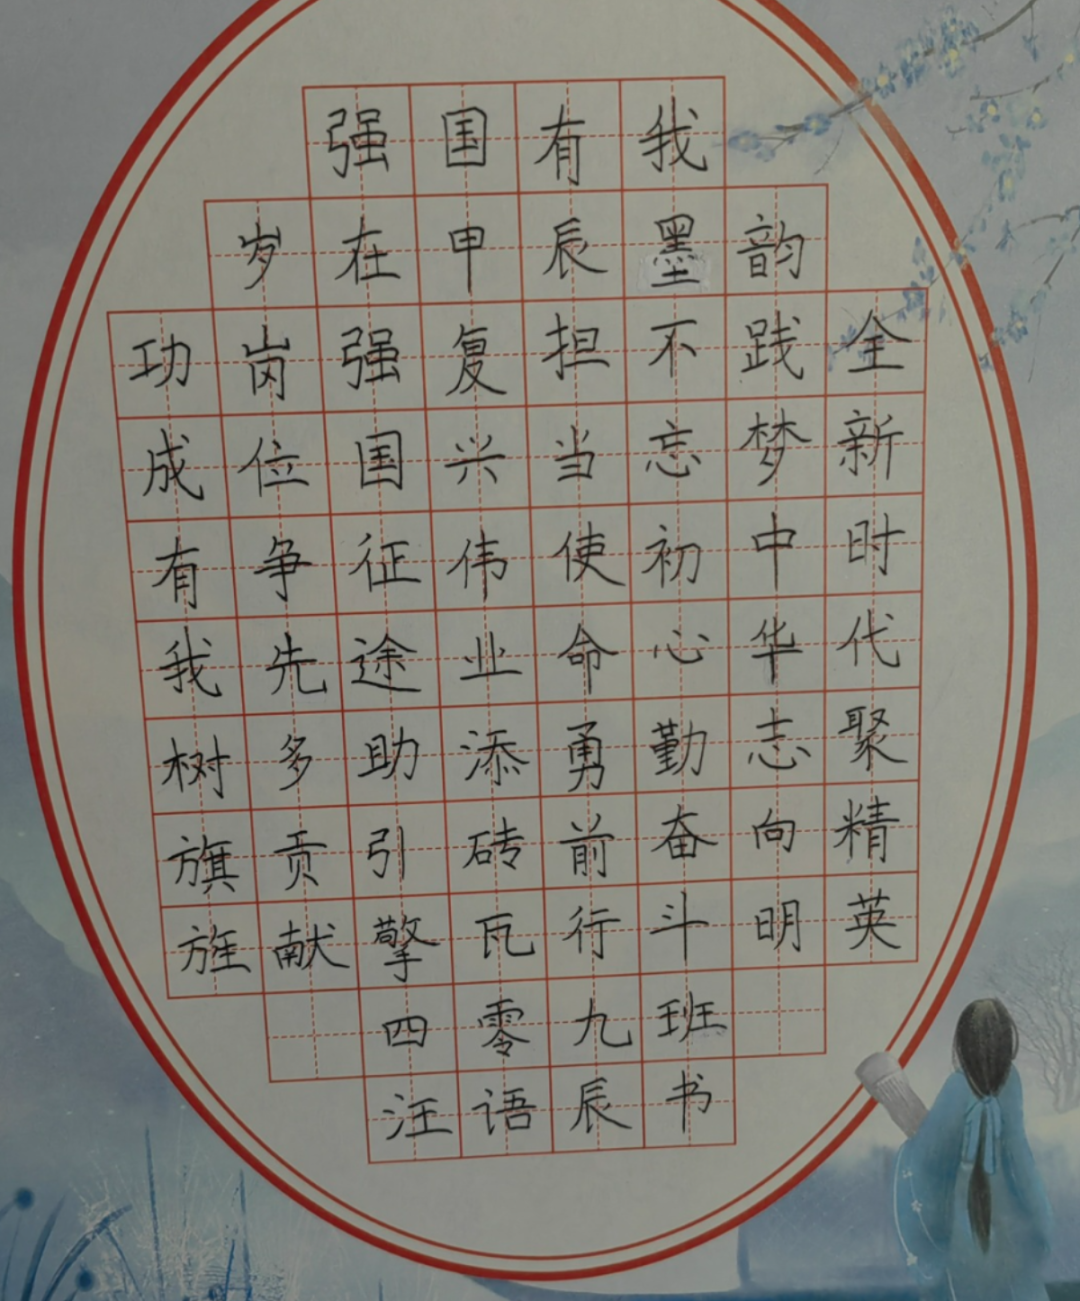 强国有我
岁在甲辰墨韵
全新时代聚精英
践梦中华志向明
不忘初心勤奋斗
担当使命勇前行
复兴伟业添砖瓦
强国征途助引擎
岗位争先多贡献
功成有我树旗旌
四零九班
汪语辰书